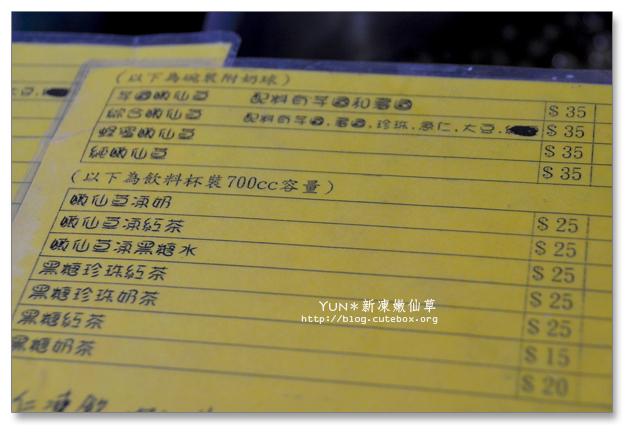 (以下為碗裝附奶球)
芋圓嫩仙草 配料有芋圓和薯圓 $35
綜合嫩仙草 配料有芋圓,薯圓,珍珠,薏仁,大豆, $35
蜂蜜嫩仙草 $35
純嫩仙草 $35
(以下為飲料杯裝700cc容量)
嫩仙草凍奶 $25
嫩仙草凍紅茶 $25
嫩仙草凍黑糖水 $25
黑糖珍珠紅茶 $25
黑糖珍珠奶茶 $25
黑糖紅茶 $15
黑糖奶茶 $20
YUN*新凍嫩仙草
http://blog.cutebox.org